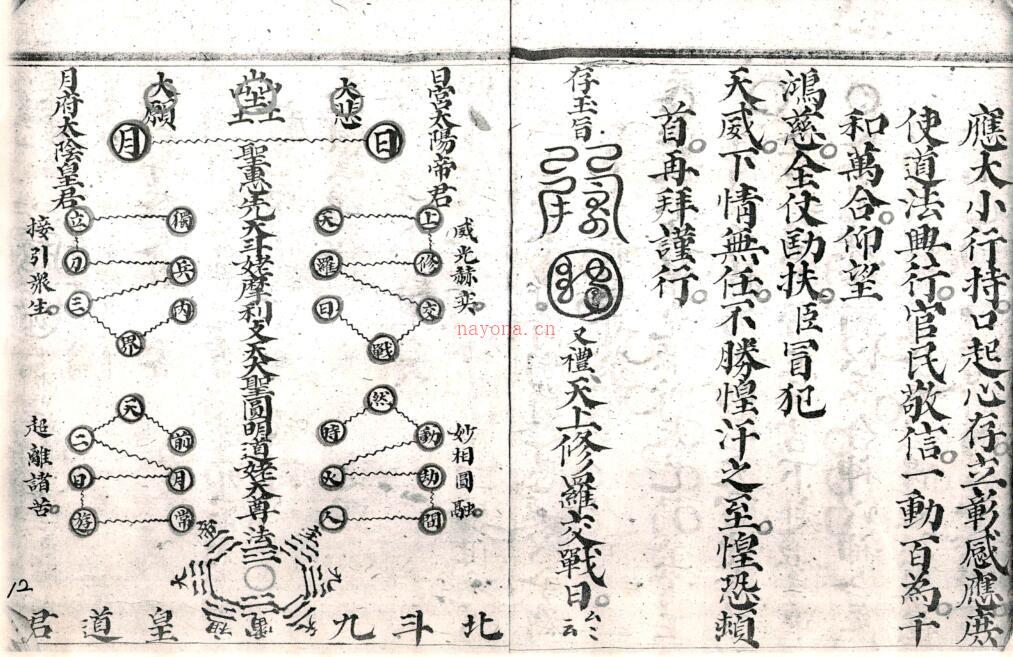 應大小行持口起心存立彰感應庶
使道法興行官民敬信一動百為千
和萬合仰望
鴻慈全仗勛扶臣冒犯
天威下情無任不勝惶汗之至惶恐頓
首再拜謹行
存玉旨
又禮天上修羅交戰日厶厶云
日宮太陽帝君
威光赫奕
妙相圓融
大悲
日
上
天
修
羅
交
日
戰
然
動
時
劫
火
間
人
聖惠先天斗姥摩利支天大聖圓明道姥天尊法
大願
月
獨
立
兵
刀
內
三
界
天
前
二
月
日
常
遊
月府太陰皇君
接引眾生
超離諸苦
北斗九皇道君
12
nayona.cn